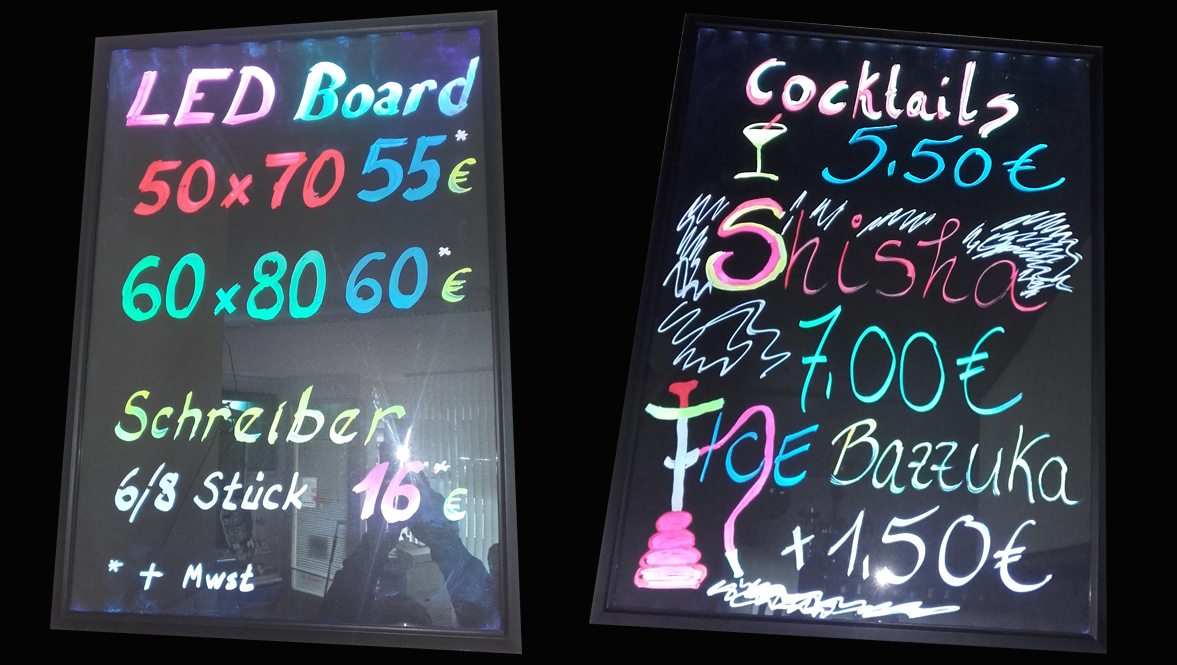 LED Board
50x70 55*€
60x80 60*€
Schreiber
6/8 Stück 16**€
* + Mwst
Cocktails
5,50€
Shisha
7,00€
ICE Bazzuka
+1,50€